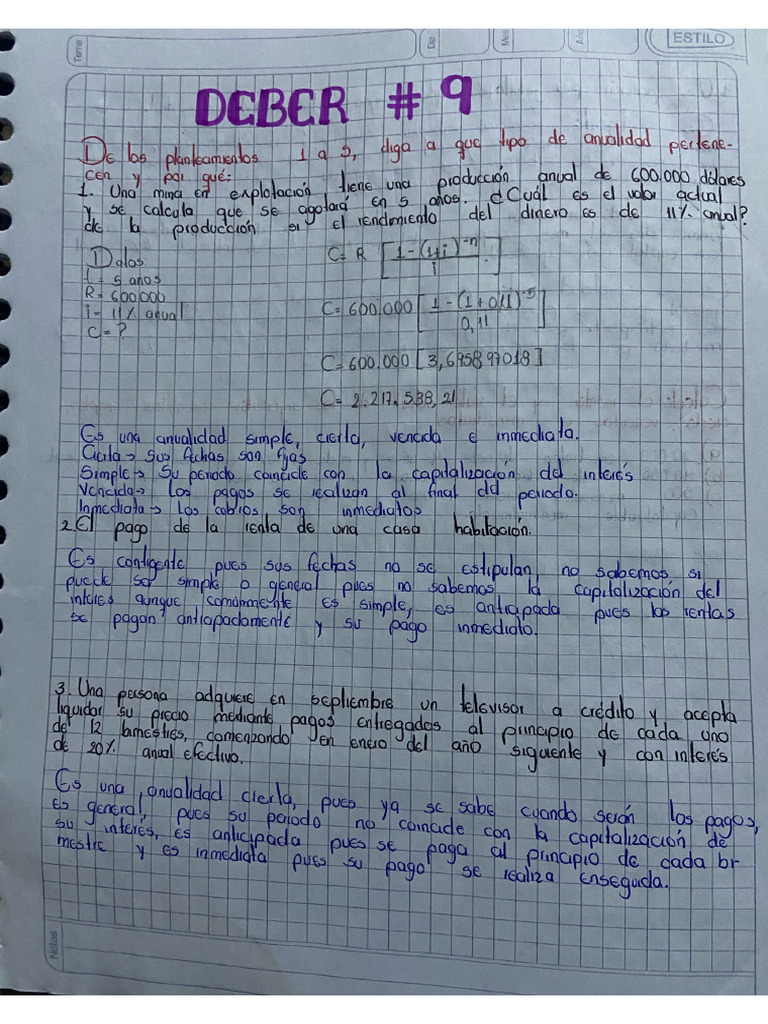 Tema
Día
Mes
Año
ESTILO
DEBER # 9
De los planteamientos 1 a 5, diga a que tipo de anualidad pertene-
cen y por qué:
1. Una mina en explotación tiene una producción anual de 600.000 dólares
y se calcula que se agotará en 5 años. ¿Cuál es el valor actual
de la producción si el rendimiento del dinero es de 11% anual?
Datos
t = 5 anos
R = 600.000
i = 11% anual
C = ?
C = R [1 - (1+i)^-n / i]
C = 600.000 [1 - (1 + 0,11)^-5 / 0,11]
C = 600.000 [3,695897018]
C = 2.217.538,21
Es una anualidad simple, cierta, vencida e inmediata.
Cierta → Sus fechas son fijas
Simple → Su periodo coincide con la capitalización del interés
Vencida → los pagos se realizan al final del periodo.
Inmediata → los cobros, son inmediatos
2. El pago de la renta de una casa habitación.
Es contigente pues sus fechas no se estipulan, no sabemos si
puede ser simple o general pues no sabemos la capitalización del
interes aunque comúnmente es simple, es anticipada pues las rentas
se pagan anticapadamente y su pago inmediato.
3. Una persona adquiere en septiembre un televisor a crédito y acepta
liquidar su precio mediante pagos entregados al principio de cada uno
de 12 bimestres, comenzando en enero del año siguiente y con interés
de 20% anual efectivo.
Es una anualidad cierta, pues ya se sabe cuando serán los pagos,
es general, pues su periodo no coincide con la capitalización de
su interes, es anticipada pues se paga al principio de cada bi
mestre y es inmediata pues su pago se realiza enseguida.
Notas